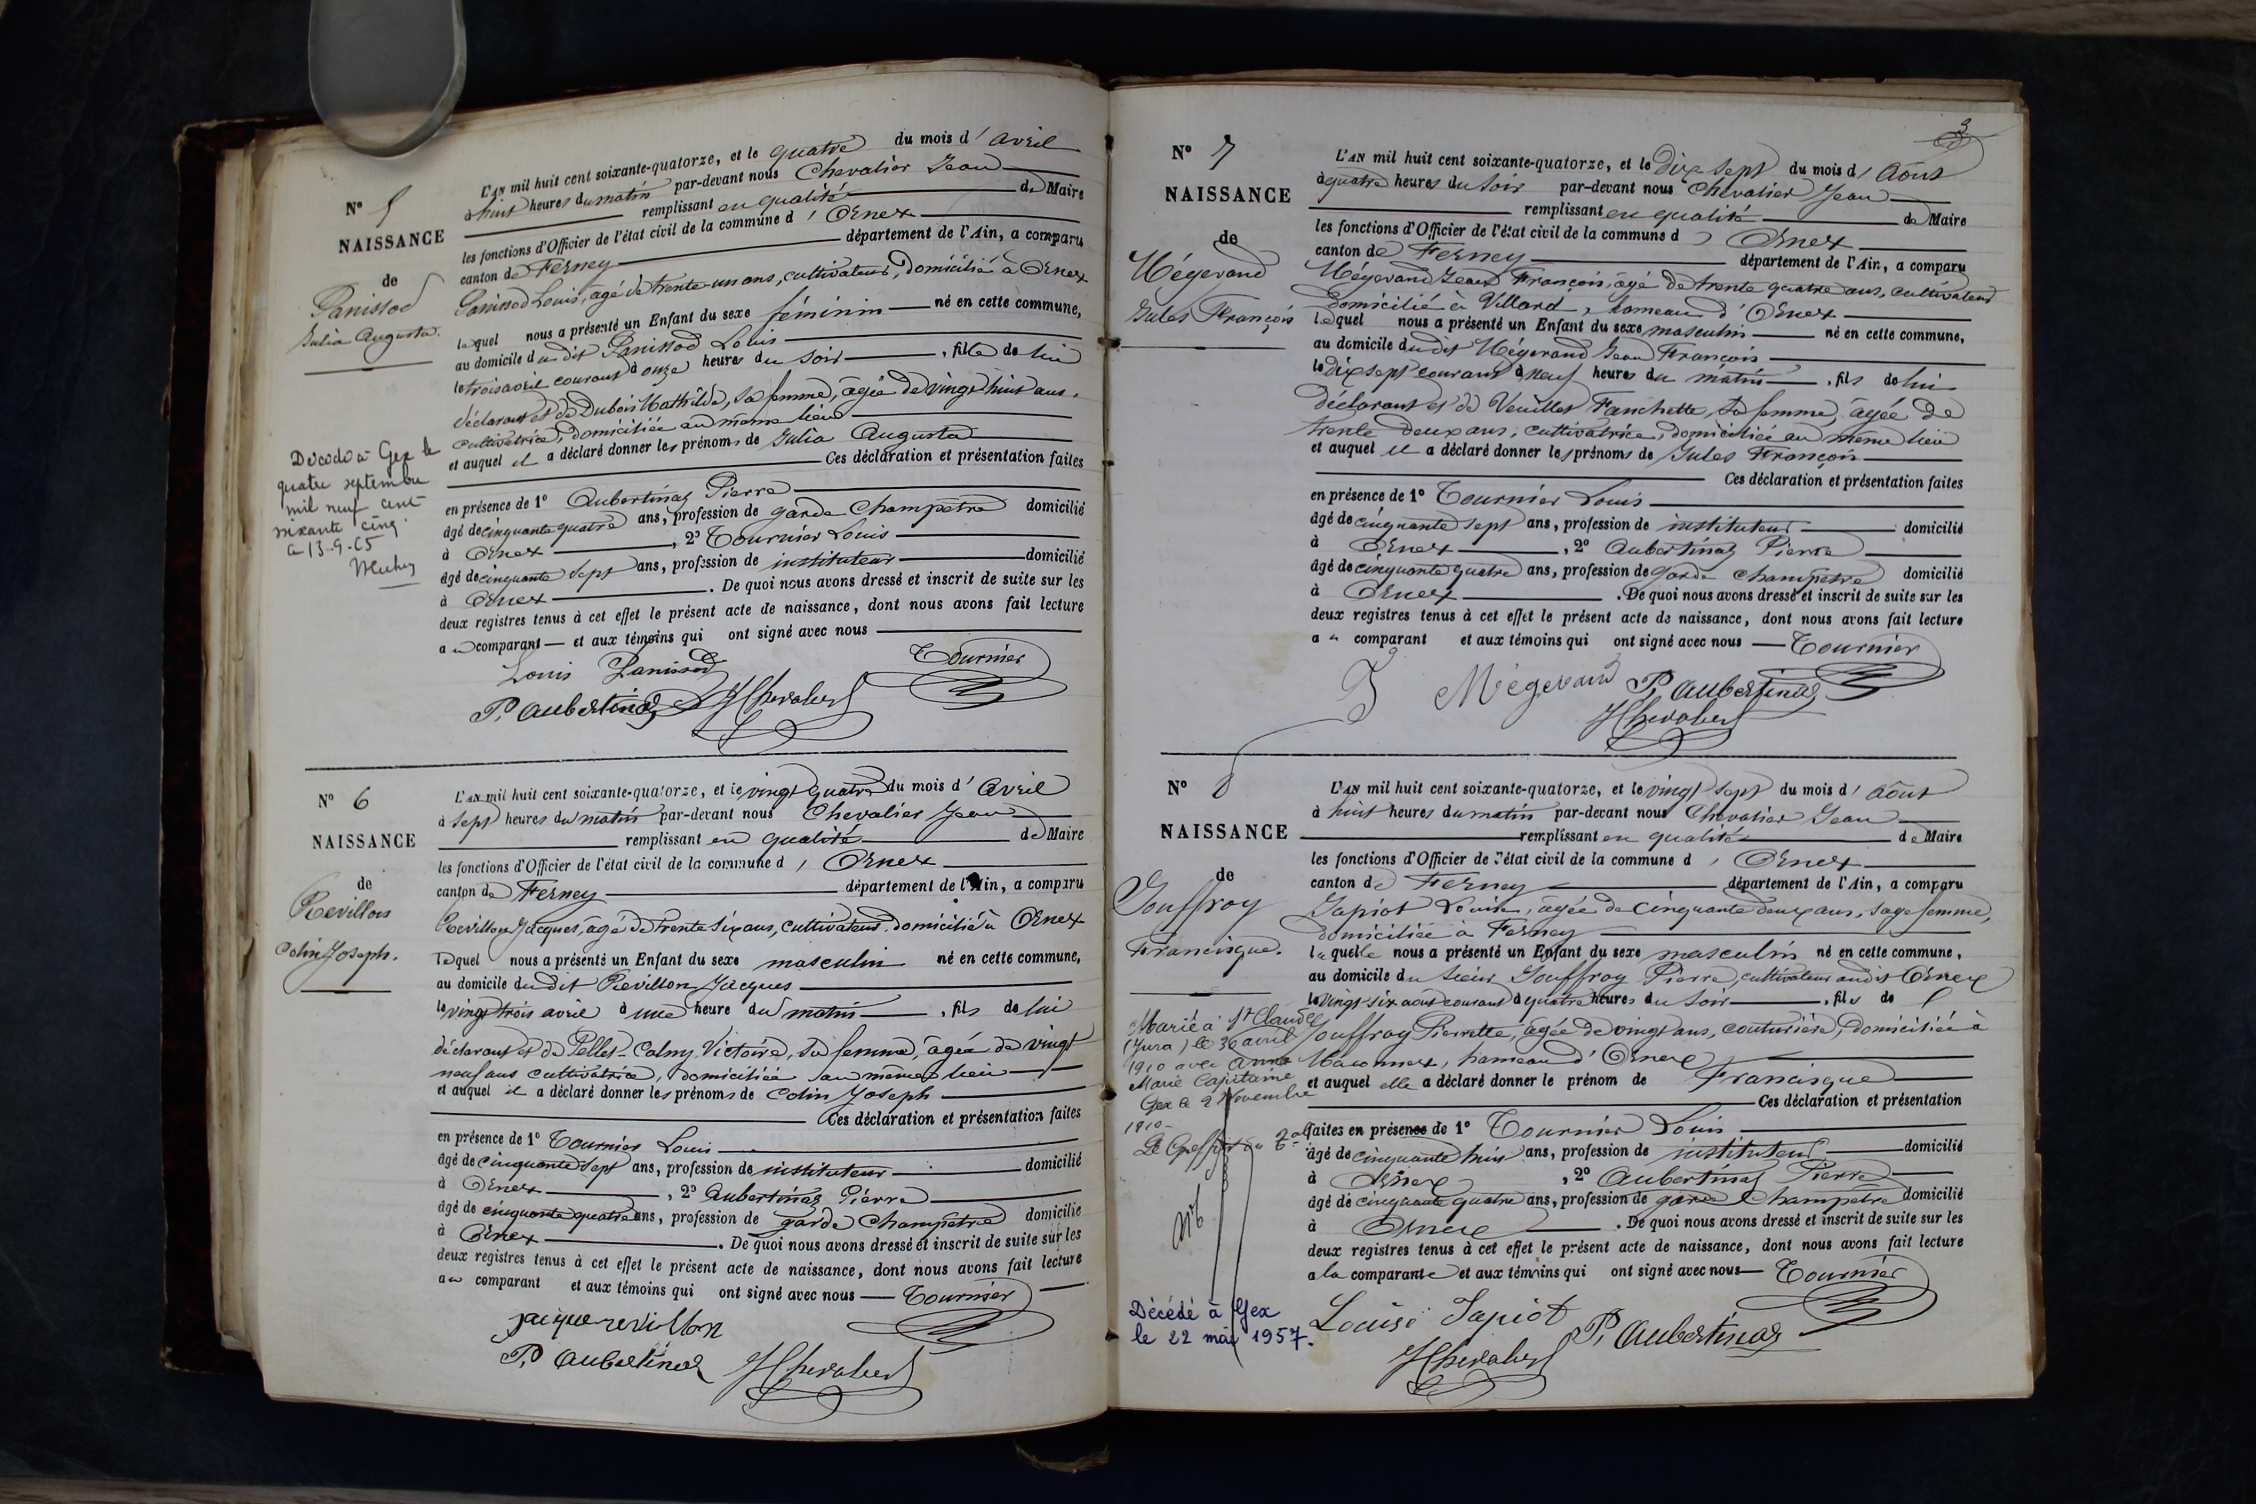 N° 5
NAISSANCE
de
Panissod
Julia Augusta.
L'AN mil huit cent soixante-quatorze, et le quatre du mois d'avril
à huit heures du matin par-devant nous Chevalier Jean
remplissant en qualité de Maire
les fonctions d'Officier de l'état civil de la commune d'Ornex
canton de Ferney département de l'Ain, a comparu
Panissod Louis, âgé de trente-un ans, cultivateur, domicilié à Ornex
lequel nous a présenté un Enfant du sexe féminin né en cette commune,
au domicile du dit Panissod Louis
le trois avril courant à onze heures du soir, fille de lui
déclarant et de Dubois Mathilde, sa femme, âgée de vingt huit ans,
cultivatrice, domiciliée au même lieu
et auquel il a déclaré donner les prénoms de Julia Augusta
Ces déclaration et présentation faites
en présence de 1° Aubertinaz Pierre
âgé de cinquante quatre ans, profession de garde champêtre domicilié
à Ornex, 2° Tournier Louis
âgé de cinquante sept ans, profession de instituteur domicilié
à Ornex. De quoi nous avons dressé et inscrit de suite sur les
deux registres tenus à cet effet le présent acte de naissance, dont nous avons fait lecture
au comparant — et aux témoins qui ont signé avec nous
Louis Panissod Tournier
P. Aubertinaz JChevalier
Décédé à Gex le
quatre septembre
mil neuf cent
soixante cinq.
a 13.9.65
N° 6
NAISSANCE
de
Revillon
Colin Joseph.
L'AN mil huit cent soixante-quatorze, et le vingt quatre du mois d'avril
à sept heures du matin par-devant nous Chevalier Jean
remplissant en qualité de Maire
les fonctions d'Officier de l'état civil de la commune d'Ornex
canton de Ferney département de l'Ain, a comparu
Revillon Jacques, âgé de trente six ans, cultivateur, domicilié à Ornex
lequel nous a présenté un Enfant du sexe masculin né en cette commune,
au domicile du dit Revillon Jacques
le vingt trois avril à une heure du matin, fils de lui
déclarant et de Pellet-Colny Victoire, sa femme, âgée de vingt
neuf ans cultivatrice, domiciliée au même lieu
et auquel il a déclaré donner les prénoms de Colin Joseph
Ces déclaration et présentation faites
en présence de 1° Tournier Louis
âgé de cinquante sept ans, profession de instituteur domicilié
à Ornex, 2° Aubertinaz Pierre
âgé de cinquante quatre ans, profession de garde champêtre domicilié
à Ornex. De quoi nous avons dressé et inscrit de suite sur les
deux registres tenus à cet effet le présent acte de naissance, dont nous avons fait lecture
au comparant et aux témoins qui ont signé avec nous — Tournier
jacque revillon
P. Aubertinaz JChevalier
3
N° 7
NAISSANCE
de
Mégevand
Jules François
L'AN mil huit cent soixante-quatorze, et le dix sept du mois d'Août
à quatre heures du soir par-devant nous Chevalier Jean
remplissant en qualité de Maire
les fonctions d'Officier de l'état civil de la commune d'Ornex
canton de Ferney département de l'Ain, a comparu
Mégevand Jean François, âgé de trente quatre ans, cultivateur
domicilié à Villard, hameau d'Ornex
lequel nous a présenté un Enfant du sexe masculin né en cette commune,
au domicile du dit Mégevand Jean François
le dix sept courant à neuf heures du matin, fils de lui
déclarant et de Veuillet Fanchette, sa femme, âgée de
trente deux ans, cultivatrice, domiciliée au même lieu
et auquel il a déclaré donner les prénoms de Jules François
Ces déclaration et présentation faites
en présence de 1° Tournier Louis
âgé de cinquante sept ans, profession de instituteur domicilié
à Ornex, 2° Aubertinaz Pierre
âgé de cinquante quatre ans, profession de garde champêtre domicilié
à Ornex. De quoi nous avons dressé et inscrit de suite sur les
deux registres tenus à cet effet le présent acte de naissance, dont nous avons fait lecture
au comparant et aux témoins qui ont signé avec nous — Tournier
J Mégevand P. Aubertinaz
JChevalier
N° 8
NAISSANCE
de
Jouffroy
Francisque.
L'AN mil huit cent soixante-quatorze, et le vingt sept du mois d'Août
à huit heures du matin par-devant nous Chevalier Jean
remplissant en qualité de Maire
les fonctions d'Officier de l'état civil de la commune d'Ornex
canton de Ferney département de l'Ain, a comparu
Japiot Louise, âgée de cinquante deux ans, sage femme,
domiciliée à Ferney
laquelle nous a présenté un Enfant du sexe masculin né en cette commune,
au domicile du sieur Jouffroy Pierre, cultivateur audit Ornex
le vingt six août courant à quatre heures du soir, fils de
Jouffroy Pierrette, âgée de vingt ans, couturière, domiciliée à
Maconnex, hameau d'Ornex
et auquel elle a déclaré donner le prénom de Francisque
Ces déclaration et présentation
faites en présence de 1° Tournier Louis
âgé de cinquante huit ans, profession de instituteur domicilié
à Ornex, 2° Aubertinaz Pierre
âgé de cinquante quatre ans, profession de garde champêtre domicilié
à Ornex. De quoi nous avons dressé et inscrit de suite sur les
deux registres tenus à cet effet le présent acte de naissance, dont nous avons fait lecture
a la comparante et aux témoins qui ont signé avec nous — Tournier
Louise Japiot P. Aubertinaz
JChevalier
Marié à St Claude
(Jura) le 30 avril
1910 avec Anna
Marie Capitaine
Gex le 2 Novembre
1910
Le Greffier du Tal
Décédé à Gex
le 22 mai 1957.